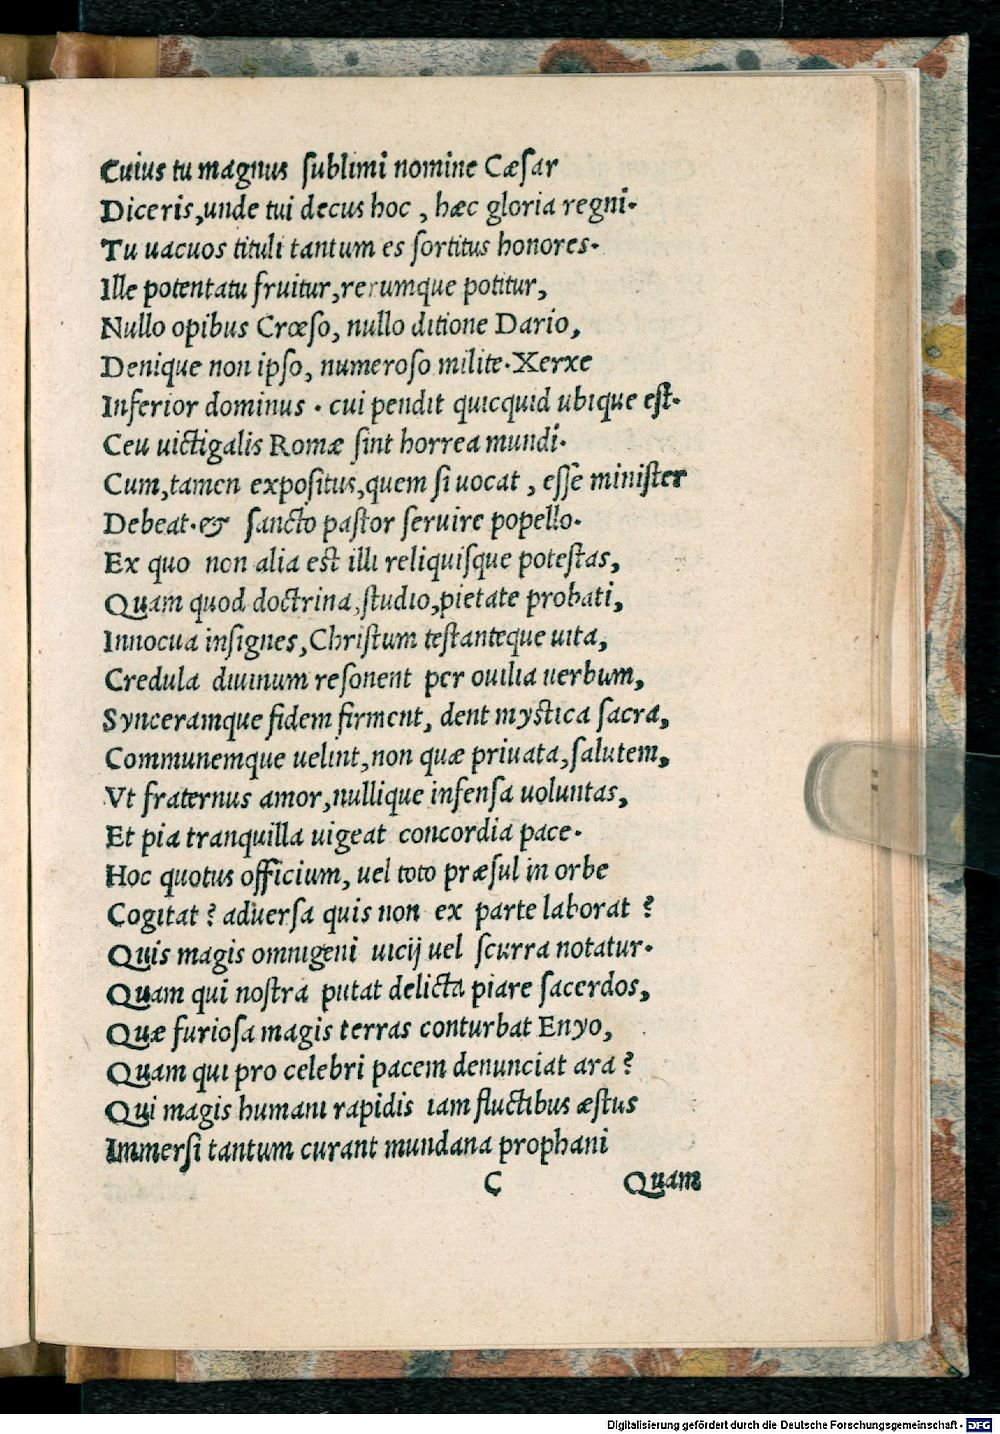 Cuius tu magnus ſublimi nomine Cæſar
Diceris,unde tui decus hoc , hæc gloria regni.
Tu uacuos tituli tantum es ſortitus honores.
Ille potentatu fruitur,rerumque potitur,
Nullo opibus Crœſo, nullo ditione Dario,
Denique non ipſo, numeroſo milite.Xerxe
Inferior dominus . cui pendit quicquid ubique eſt.
Ceu uictigalis Romæ ſint horrea mundi.
Cum,tamen expoſitus,quem ſi uocat , eſſe miniſter
Debeat.& ſancto paſtor ſeruire popello.
Ex quo non alia eſt illi reliquiſque poteſtas,
Quam quod doctrina,ſtudio,pietate probati,
Innocua inſignes,Chriſtum teſtanteque uita,
Credula diuinum reſonent per ouilia uerbum,
Synceramque fidem firment, dent myſtica ſacra,
Communemque uelint,non quæ priuata,ſalutem,
Vt fraternus amor,nullique infenſa uoluntas,
Et pia tranquilla uigeat concordia pace.
Hoc quotus officium, uel toto præſul in orbe
Cogitat ? aduerſa quis non ex parte laborat ?
Quis magis omnigeni uicij uel ſcurra notatur.
Quam qui noſtra putat delicta piare ſacerdos,
Quæ furioſa magis terras conturbat Enyo,
Quam qui pro celebri pacem denunciat ara ?
Qui magis humani rapidis iam fluctibus æſtus
Immerſi tantum curant mundana prophani
C Quam
Digitalisierung gefördert durch die Deutsche Forschungsgemeinschaft - DFG